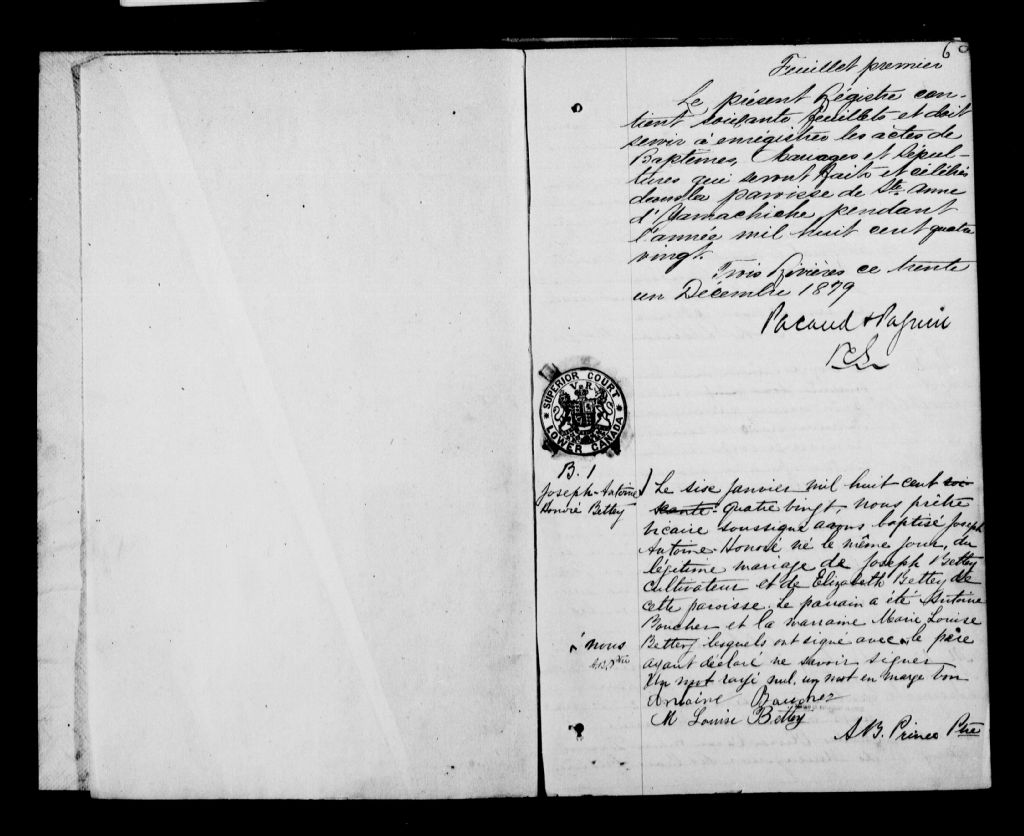 60
Feuillet premier
Le présent Régistre con-
tient soixante feuillets et doit
servir à enrégistrer les actes de
Baptêmes, Mariages et Sépul-
tures qui seront faits et célébrés
dans la paroisse de Ste Anne
d'Yamachiche pendant
l'année mil huit cent quatre
vingt.
Trois Rivières ce trente
un Décembre 1879
Pacaud & Paquin
P.C.S.
SUPERIOR COURT
V. R.
LOWER CANADA
B. 1
Joseph-Antoine
Honoré Bettey
Le six janvier mil huit cent soi-
xante quatre vingt, nous prêtre
vicaire soussigné avons baptisé Joseph
Antoine Honoré né le même jour, du
légitime mariage de Joseph Bettey
cultivateur et de Elizabeth Bettey de
cette paroisse. Le parrain a été Antoine
Boucher et la marraine Marie Louise
Bettey lesquels ont signé avec le père
ayant déclaré ne savoir signer
Un mot rayé nul, un mot en marge bon
nous
A.B. Ptre
Antoine Boucher
M Louise Bettey
A B. Prince Ptre